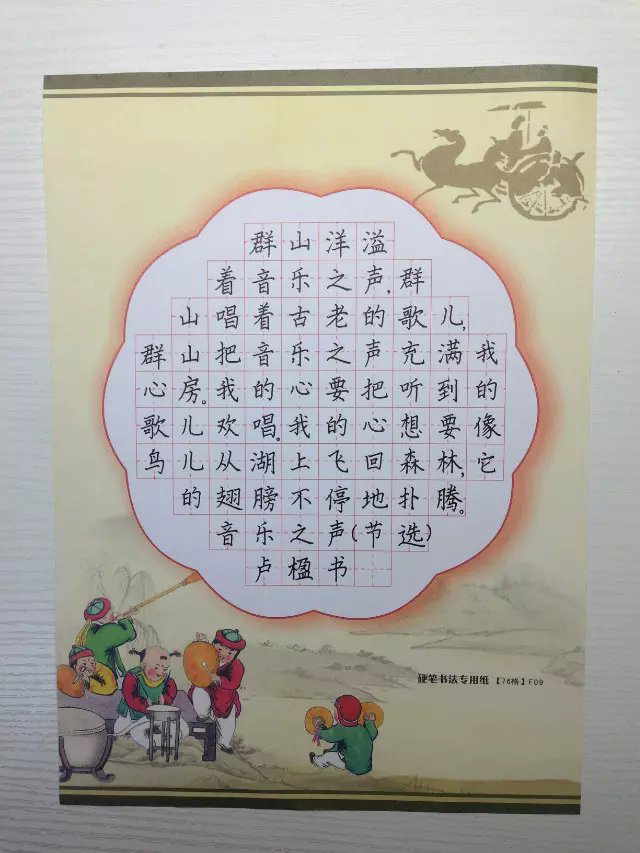 群山洋溢
着音乐之声,群
山唱着古老的歌儿,
群山把音乐之声充满我
心房。我的心要把听到的
歌儿欢唱。我的心想要像
鸟儿从湖上飞回森林,它
的翅膀不停地扑腾。
音乐之声(节选)
卢楹书
硬笔书法专用纸【76格】F09